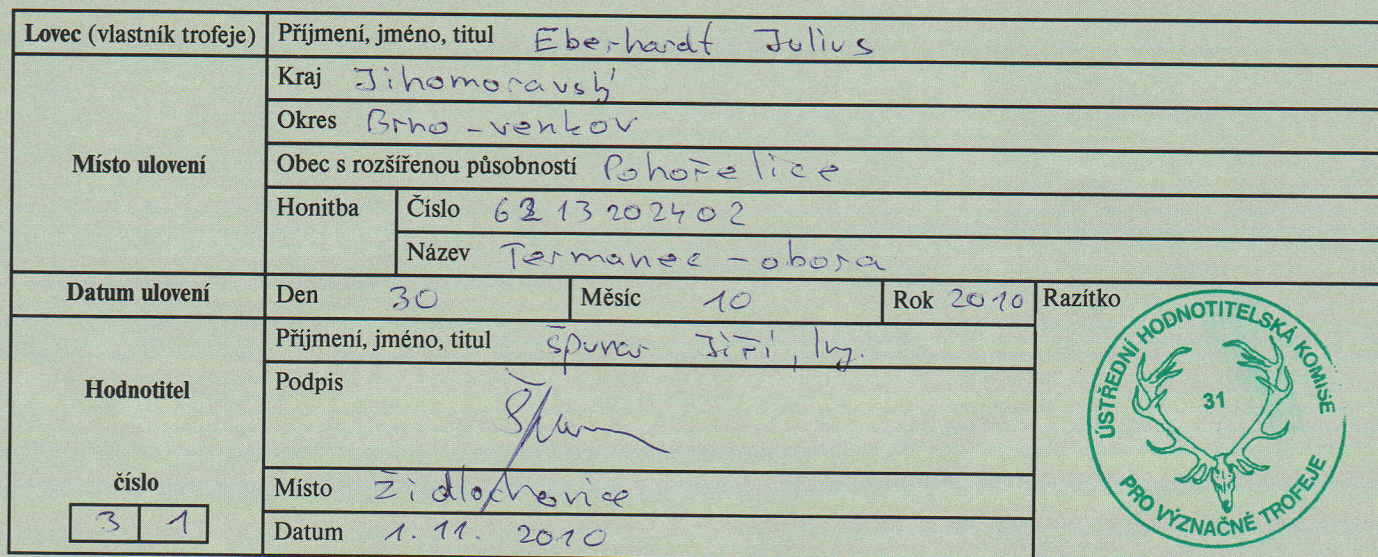 Lovec (vlastník trofeje) Příjmení, jméno, titul Eberhardt Julius
Místo ulovení
Kraj Jihomoravský
Okres Brno-venkov
Obec s rozšířenou působností Pohořelice
Honitba Číslo 6213202402
Název -obora
Datum ulovení Den 30 Měsíc 10 Rok 2010 Razítko
Hodnotitel
Příjmení, jméno, titul Špunar Jiří, Ing.
Podpis
číslo
3 1
Místo Židlochovice
Datum 1. 11. 2010
ÚSTŘEDNÍ HODNOTITELSKÁ KOMISE
31
PRO VÝZNAČNÉ TROFEJE